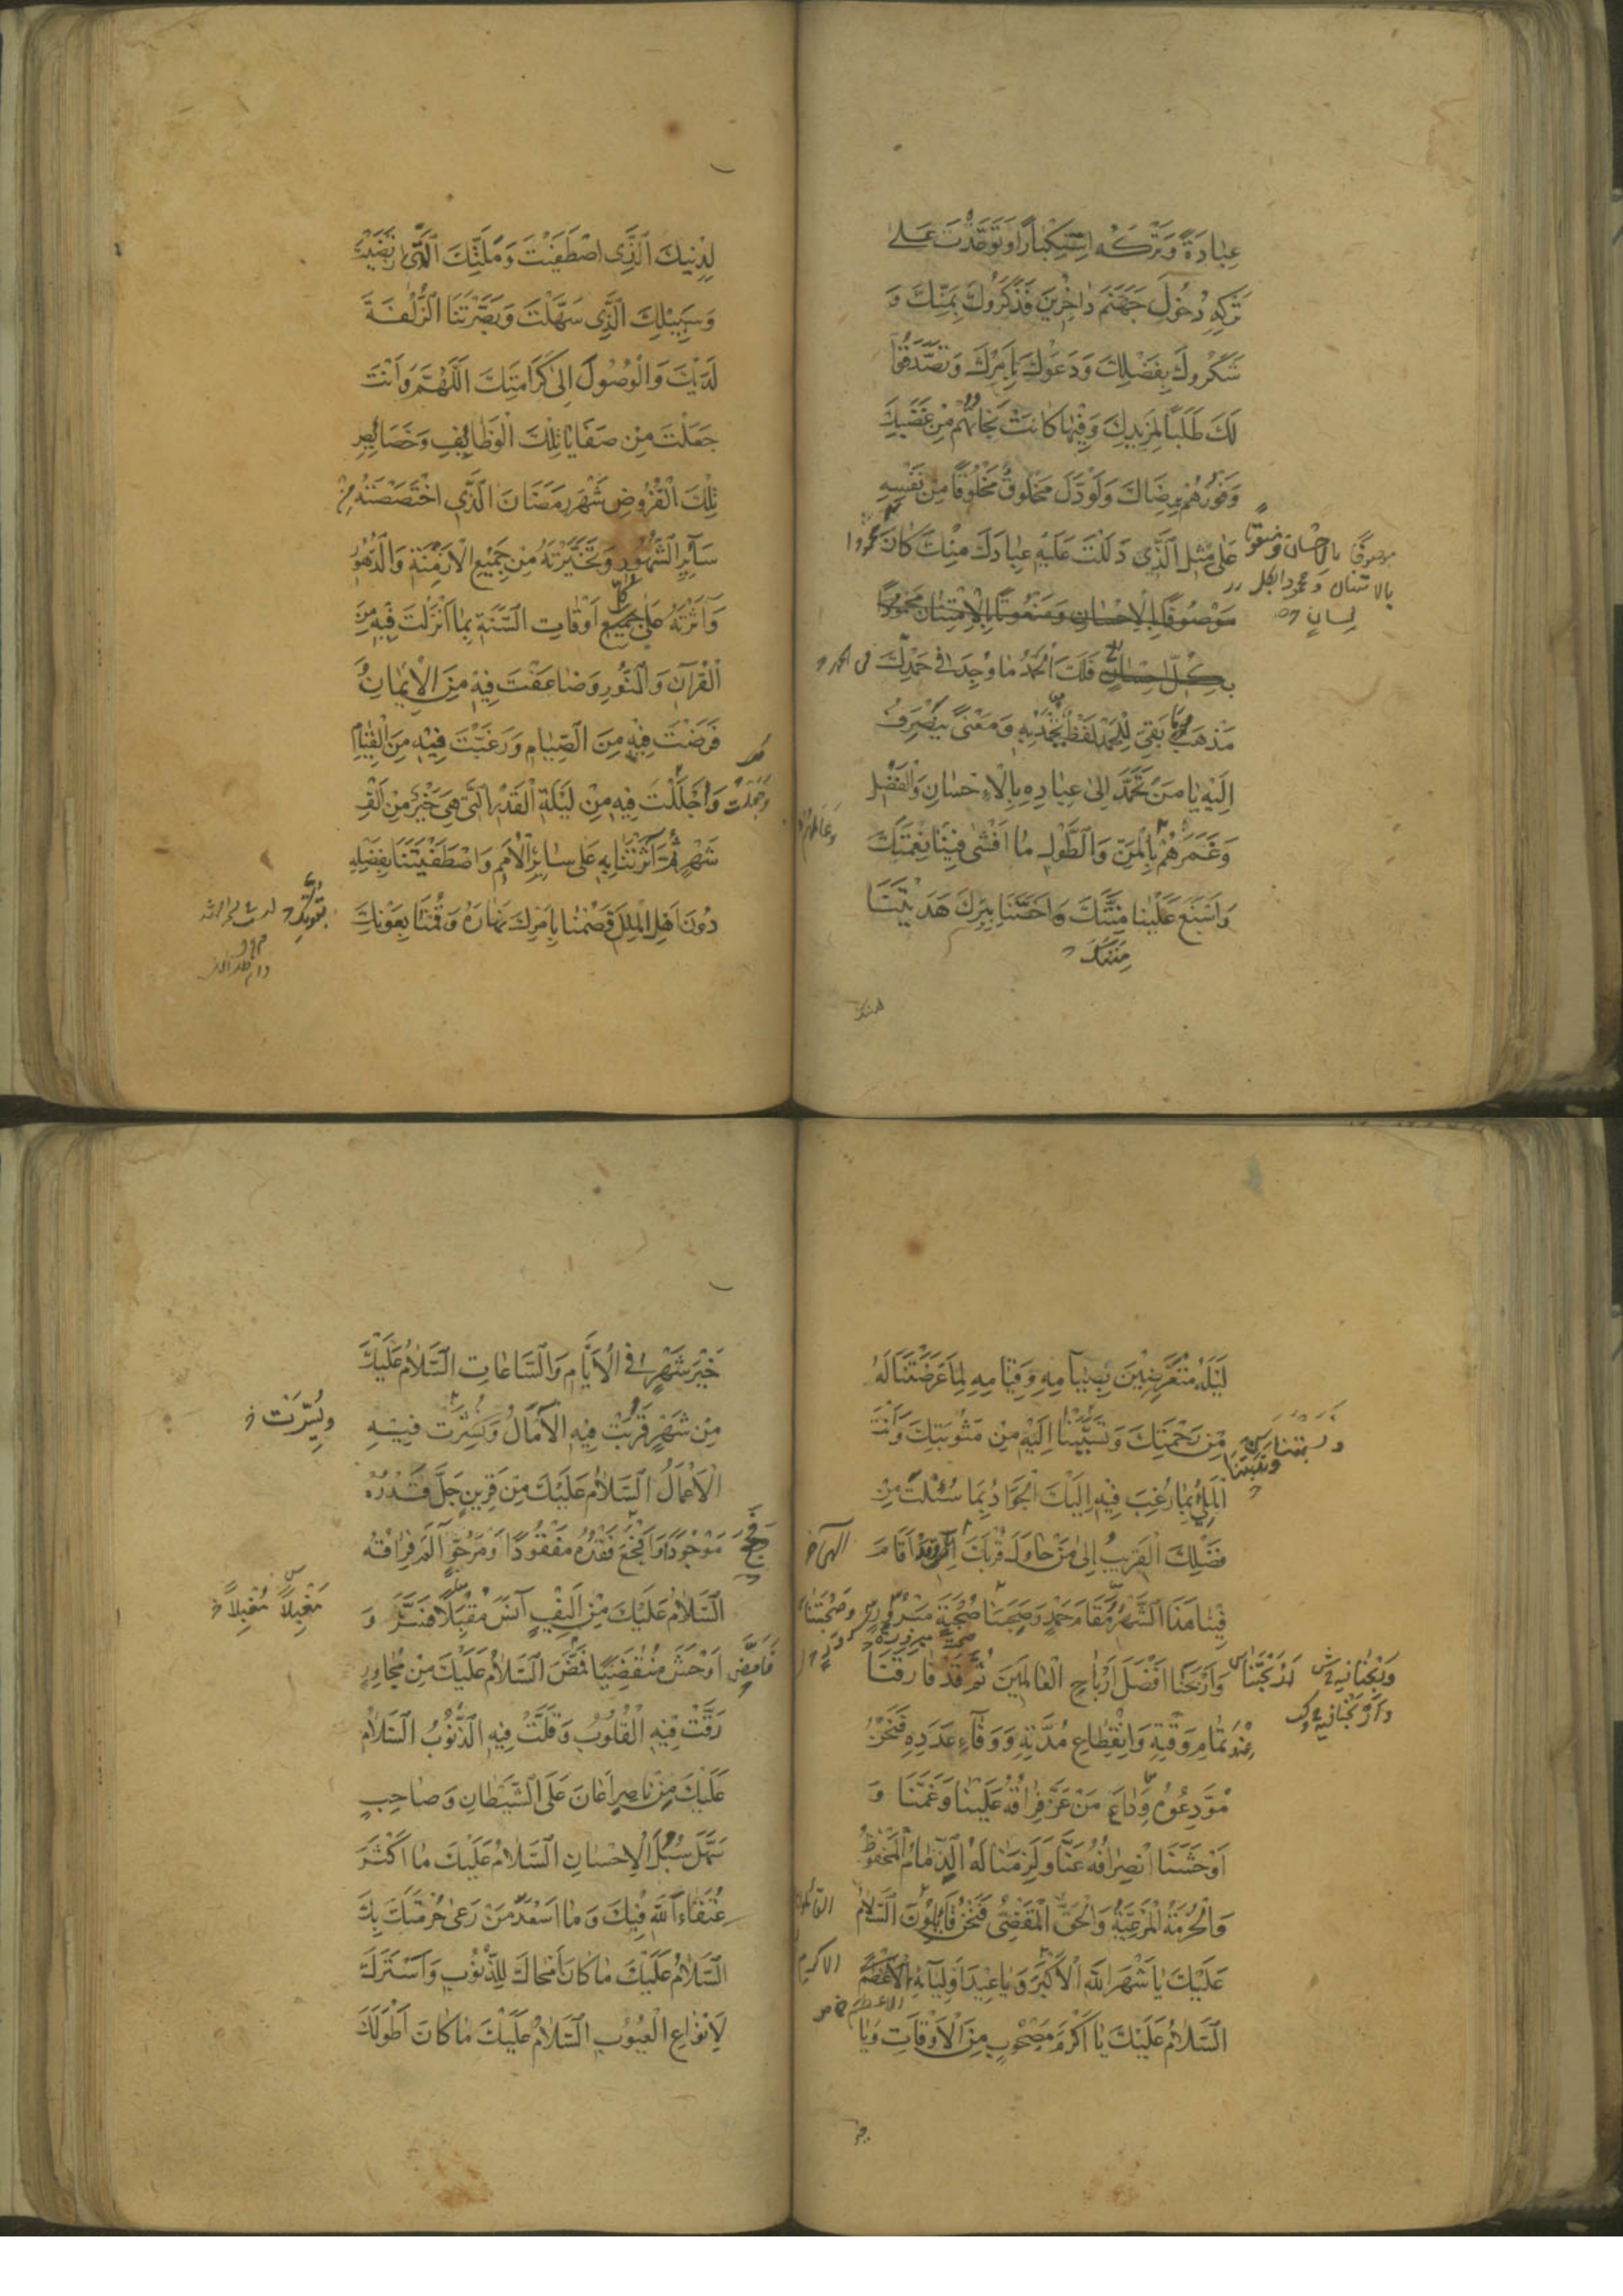 عِبَادَةً وَتَرْكَهُ اسْتِكْبَارًا وَتَوَعَّدْتَ عَلَى
تَرْكِهِ دُخُولَ جَهَنَّمَ دَاخِرِينَ فَذَكَرُوكَ بِمَنِّكَ وَ
شَكَرُوكَ بِفَضْلِكَ وَدَعَوْكَ بِأَمْرِكَ وَتَصَدَّقُوا
لَكَ طَلَبًا لِمَزِيدِكَ وَفِيهَا كَانَتْ نَجَاتُهُمْ مِنْ غَضَبِكَ
وَفَوْزُهُمْ بِرِضَاكَ وَلَوْ دَلَّ مَخْلُوقٌ مَخْلُوقًا مِنْ نَفْسِهِ
عَلَى مِثْلِ الَّذِي دَلَلْتَ عَلَيْهِ عِبَادَكَ مِنْكَ كَانَ مَحْمُودًا
موصوفًا بالاحسان ومنعوتا
بالامتنان ومحمودا بكل
لسانٍ
مَوْصُوفًا بِالْإِحْسَانِ وَمَنْعُوتًا بِالْاِمْتِنَانِ مَحْمُودًا
بِكُلِّ إِحْسَانٍ فَلَكَ الْحَمْدُ مَا وُجِدَ فِي حَمْدِكَ
مَذْهَبٌ وَمَا بَقِيَ لِلْحَمْدِ لَفْظٌ تُحْمَدُ بِهِ وَمَعْنًى يَنْصَرِفُ
إِلَيْهِ يَا مَنْ تَحَمَّدَ إِلَى عِبَادِهِ بِالْإِحْسَانِ وَالْفَضْلِ
وَغَمَرَهُمْ بِالْمَنِّ وَالطَّوْلِ مَا أَفْشَى فِينَا نِعْمَتَكَ
وَأَسْبَغَ عَلَيْنَا مِنَّتَكَ وَأَخَصَّنَا بِبِرِّكَ هَدَيْتَنَا
مِنَنَكَ
لِدِينِكَ الَّذِي اصْطَفَيْتَ وَمِلَّتِكَ الَّتِي ارْتَضَيْتَ
وَسَبِيلِكَ الَّذِي سَهَّلْتَ وَبَصَّرْتَنَا الزُّلْفَةَ
لَدَيْكَ وَالْوُصُولَ إِلَى كَرَامَتِكَ اللَّهُمَّ وَأَنْتَ
جَعَلْتَ مِنْ صَفَايَا تِلْكَ الْوَظَائِفِ وَخَصَائِصِ
تِلْكَ الْفُرُوضِ شَهْرَ رَمَضَانَ الَّذِي اخْتَصَصْتَهُ مِنْ
سَائِرِ الشُّهُورِ وَتَخَيَّرْتَهُ مِنْ جَمِيعِ الْأَزْمِنَةِ وَالدُّهُورِ
وَآثَرْتَهُ عَلَى جَمِيعِ أَوْقَاتِ السَّنَةِ بِمَا أَنْزَلْتَ فِيهِ مِنَ
الْقُرْآنِ وَالنُّورِ وَضَاعَفْتَ فِيهِ مِنَ الْإِيمَانِ وَ
فَرَضْتَ فِيهِ مِنَ الصِّيَامِ وَرَغَّبْتَ فِيهِ مِنَ الْقِيَامِ
وَأَجْلَلْتَ فِيهِ مِنْ لَيْلَةِ الْقَدْرِ الَّتِي هِيَ خَيْرٌ مِنْ أَلْفِ
شَهْرٍ ثُمَّ آثَرْتَنَا بِهِ عَلَى سَائِرِ الْأُمَمِ وَاصْطَفَيْتَنَا بِفَضْلِهِ
دُونَ أَهْلِ الْمِلَلِ فَصُمْنَا بِأَمْرِكَ نَهَارَهُ وَقُمْنَا بِعَوْنِكَ
لَيْلَهُ مُتَعَرِّضِينَ بِصِيَامِهِ وَقِيَامِهِ لِمَا عَرَّضْتَنَا لَهُ
مِنْ رَحْمَتِكَ وَتَسَبَّبْنَا إِلَيْهِ مِنْ مَثُوبَتِكَ وَأَنْتَ
الْمَلِيءُ بِمَا رُغِبَ فِيهِ إِلَيْكَ الْجَوَادُ بِمَا سُئِلْتَ مِنْ
فَضْلِكَ الْقَرِيبُ إِلَى مَنْ حَاوَلَ قُرْبَكَ وَقَدْ أَقَامَ
فِينَا هَذَا الشَّهْرُ مُقَامَ حَمْدٍ وَصَحِبَنَا صُحْبَةَ مَبْرُورٍ
وَأَرْبَحَنَا أَفْضَلَ أَرْبَاحِ الْعَالَمِينَ ثُمَّ قَدْ فَارَقَنَا
عِنْدَ تَمَامِ وَقْتِهِ وَانْقِطَاعِ مُدَّتِهِ وَوَفَاءِ عَدَدِهِ فَنَحْنُ
مُوَدِّعُوهُ وِدَاعَ مَنْ عَزَّ فِرَاقُهُ عَلَيْنَا وَغَمَّنَا وَ
أَوْحَشَنَا انْصِرَافُهُ عَنَّا وَلَزِمَنَا لَهُ الذِّمَامُ الْمَحْفُوظُ
وَالْحُرْمَةُ الْمَرْعِيَّةُ وَالْحَقُّ الْمَقْضِيُّ فَنَحْنُ قَائِلُونَ السَّلَامُ
عَلَيْكَ يَا شَهْرَ اللَّهِ الْأَكْبَرَ وَيَا عِيدَ أَوْلِيَائِهِ الْأَعْظَمَ
السَّلَامُ عَلَيْكَ يَا أَكْرَمَ مَصْحُوبٍ مِنَ الْأَوْقَاتِ وَيَا
خَيْرَ شَهْرٍ فِي الْأَيَّامِ وَالسَّاعَاتِ السَّلَامُ عَلَيْكَ
مِنْ شَهْرٍ قَرُبَتْ فِيهِ الْآمَالُ وَنُشِرَتْ فِيهِ
ويُسِّرَت
الْأَعْمَالُ السَّلَامُ عَلَيْكَ مِنْ قَرِينٍ جَلَّ قَدْرُهُ
مَوْجُودًا وَأَفْجَعَ فَقْدُهُ مَفْقُودًا وَمَرْجُوٍّ آلَمَ فِرَاقُهُ
السَّلَامُ عَلَيْكَ مِنْ أَلِيفٍ آنَسَ مُقْبِلًا فَسَرَّ وَ
أَوْحَشَ مُنْقَضِيًا فَمَضَّ السَّلَامُ عَلَيْكَ مِنْ مُجَاوِرٍ
رَقَّتْ فِيهِ الْقُلُوبُ وَقَلَّتْ فِيهِ الذُّنُوبُ السَّلَامُ
عَلَيْكَ مِنْ نَاصِرٍ أَعَانَ عَلَى الشَّيْطَانِ وَصَاحِبٍ
سَهَّلَ سُبُلَ الْإِحْسَانِ السَّلَامُ عَلَيْكَ مَا أَكْثَرَ
عُتَقَاءَ اللَّهِ فِيكَ وَمَا أَسْعَدَ مَنْ رَعَى حُرْمَتَكَ بِكَ
السَّلَامُ عَلَيْكَ مَا كَانَ أَمْحَاكَ لِلذُّنُوبِ وَأَسْتَرَكَ
لِأَنْوَاعِ الْعُيُوبِ السَّلَامُ عَلَيْكَ مَا كَانَ أَطْوَلَكَ